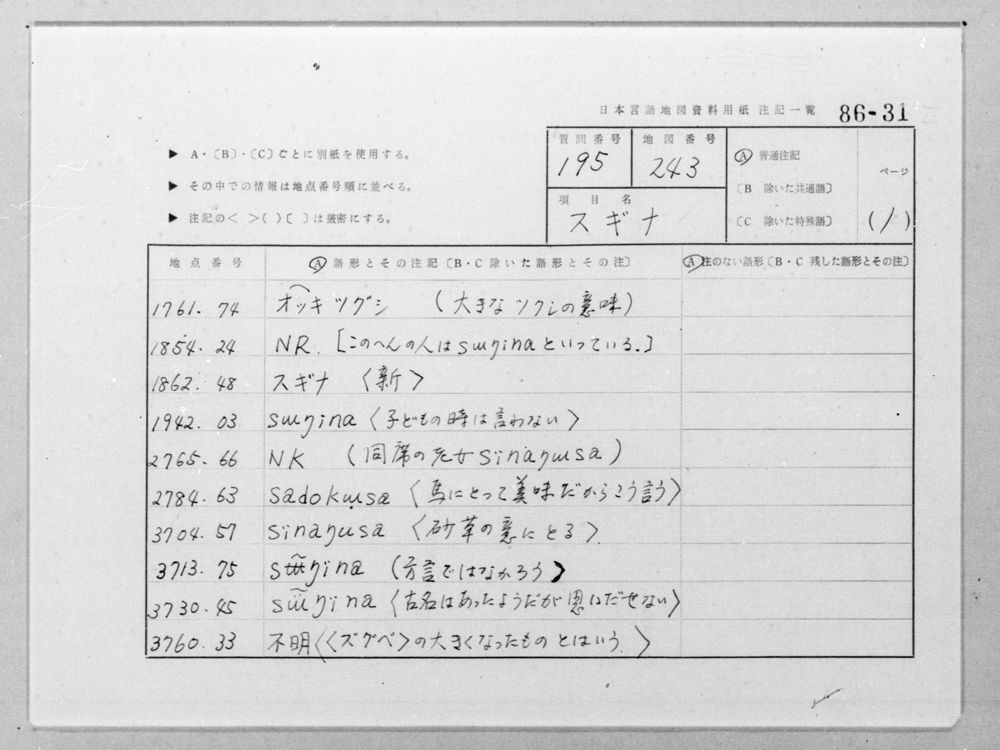 日本言語地図資料用紙 注記一覧 86-31
▶ A・〔B〕・〔C〕ごとに別紙を使用する。
▶ その中での情報は地点番号順に並べる。
▶ 注記の< >( )〔 〕は厳密にする。
質問番号 195
地図番号 243
項目名 スギナ
Ⓐ 普通注記
〔B 除いた共通語〕
〔C 除いた特殊語〕
ページ (1)
地点番号 Ⓐ 語形とその注記〔B・C除いた語形とその注〕 Ⓐ 注のない語形〔B・C 残した語形とその注〕
1761. 74 オッキツグシ (大きなツクシの意味)
1854. 24 NR. [このへんの人はsɯŋinaといっている.]
1862. 48 スギナ 〈新〉
1942. 03 sɯŋina 〈子どもの時は言わない〉
2765. 66 NK (同席の sinaŋɯsa)
2784. 63 sadokɯsa 〈馬にとって美味だからこう言う〉
3704. 57 sinaŋusa 〈砂草の意にとる〉
3713. 75 (方言ではなかろう)
3730. 45 sɯ̈ŋina 〈古名はあったようだが思いだせない〉
3760. 33 不明〈〈ズグベ〉の大きくなったものとはいう.〉